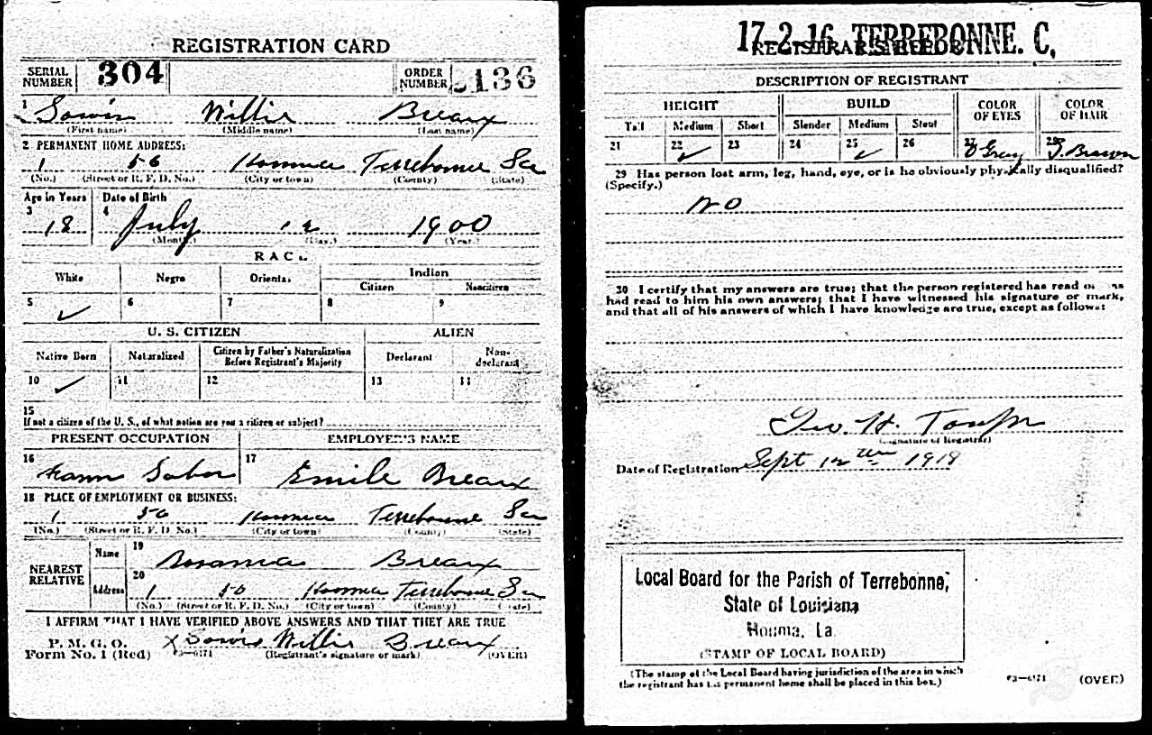 REGISTRATION CARD
SERIAL NUMBER 304 ORDER NUMBER 136
1 Willie Breaux
(First name) (Middle name) (Last name)
2 PERMANENT HOME ADDRESS:
1 56 Houma Terrebonne La
(No.) (Street or R. F. D. No.) (City or town) (County) (State)
Age in Years Date of Birth
3 18 4 July 12 1900
(Month.) (Day.) (Year.)
RACE
White Negro Oriental Indian
Citizen Noncitizen
5 ✓ 6 7 8 9
U. S. CITIZEN ALIEN
Native Born Naturalized Citizen by Father's Naturalization Before Registrant's Majority Declarant Non-declarant
10 ✓ 11 12 13 14
15
If not a citizen of the U. S., of what nation are you a citizen or subject?
PRESENT OCCUPATION EMPLOYER'S NAME
16 Farm Labor 17 Emile Breaux
18 PLACE OF EMPLOYMENT OR BUSINESS:
1 56 Houma Terrebonne La
(No.) (Street or R. F. D. No.) (City or town) (County) (State)
NEAREST RELATIVE Name 19 Breaux
Address 20 1 56 Houma Terrebonne La
(No.) (Street or R. F. D. No.) (City or town) (County) (State)
I AFFIRM THAT I HAVE VERIFIED ABOVE ANSWERS AND THAT THEY ARE TRUE
P. M. G. O.
Form No. 1 (Red) 03—6171 X Willie Breaux
(Registrant's signature or mark) (OVER)
17-2-16 TERREBONNE. C,
REGISTRAR'S REPORT
DESCRIPTION OF REGISTRANT
HEIGHT BUILD COLOR OF EYES COLOR OF HAIR
Tall Medium Short Slender Medium Stout
21 22 ✓ 23 24 25 ✓ 26 27 Grey 28 Brown
29 Has person lost arm, leg, hand, eye, or is he obviously physically disqualified?
(Specify.)
no
30 I certify that my answers are true; that the person registered has read or has
had read to him his own answers; that I have witnessed his signature or mark,
and that all of his answers of which I have knowledge are true, except as follows:
Geo. H.
(Signature of Registrar)
Date of Registration Sept 12th 1918
Local Board for the Parish of Terrebonne,
State of Louisiana
Houma, La.
(STAMP OF LOCAL BOARD)
(The stamp of the Local Board having jurisdiction of the area in which
the registrant has his permanent home shall be placed in this box.)
03—6171 (OVER)